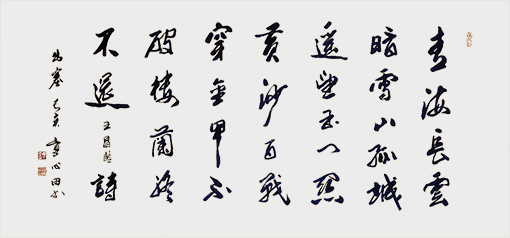 青海長雲
暗雪山孤城
遥望玉门關
黄沙百戰
穿金甲不
破楼蘭終
不還王昌齡詩
出塞己亥心田书